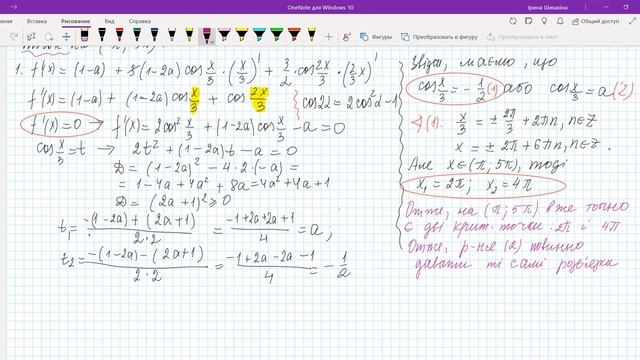 OneNote для Windows 10
Ірина Шишкіна
Рисование
Вид
Общий доступ
Преобразовать в фигуры
Преобразовать в текст
1. f'(x) = (1-a) + 3(1-2a) cos x/3 · (x/3)' + 3/2 · cos 2x/3 · (2x/3)'
f'(x) = (1-a) + (1-2a) cos x/3 + cos 2x/3 {cos2α = 2cos²α-1
f'(x) = 0 → f'(x) = 2cos² x/3 + (1-2a) cos x/3 - a = 0
cos x/3 = t → 2t² + (1-2a)t - a = 0
D = (1-2a)² - 4·2·(-a) =
= 1-4a+4a² + 8a = 4a²+4a+1
D = (2a+1)² ≥ 0
t₁ = (-(1-2a) + (2a+1))/(2·2) = (-1+2a+2a+1)/4 = a;
t₂ = (-(1-2a) - (2a+1))/(2·2) = (-1+2a-2a-1)/4 = -1/2
Звідси, маємо, що
cos x/3 = -1/2 (1) або cos x/3 = a (2)
(1). x/3 = ± 2π/3 + 2πn, n∈Z
x = ± 2π + 6πn, n∈Z.
Але x∈(π; 5π), тоді
x₁ = 2π; x₂ = 4π
Отже, на (π; 5π) вже точно
є дві крит. точки 2π і 4π.
Отже, р-ня (2) повинно
давати ті самі розв'язки